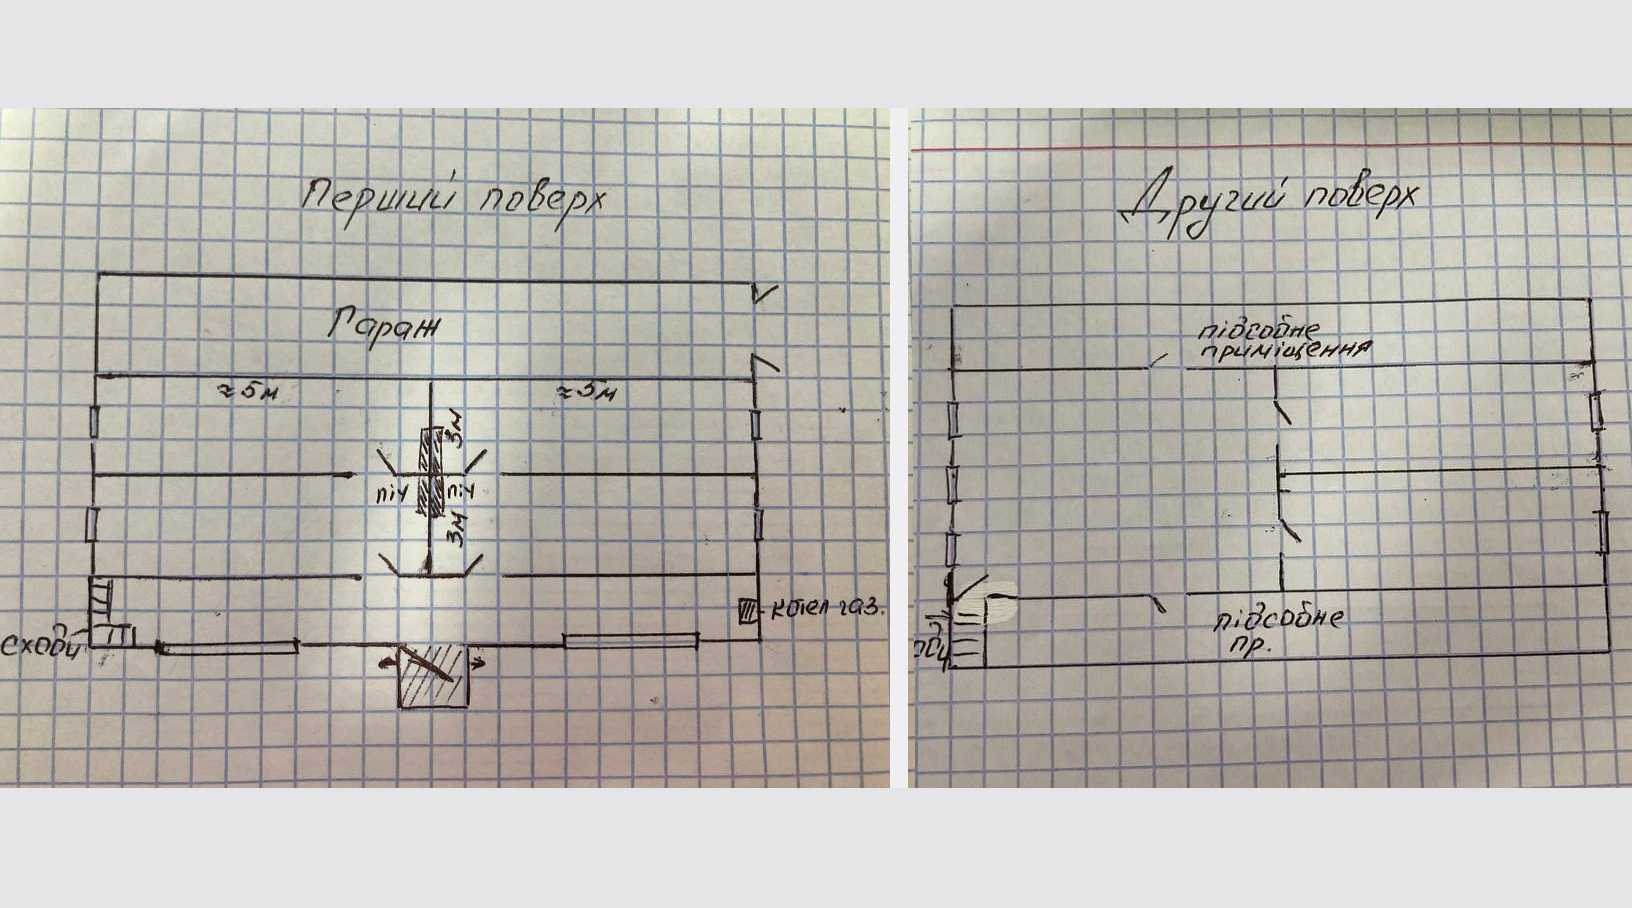 Перший поверх
Гараж
≈5м
≈5м
3м
піч
піч
3м
котел газ.
сходи
Другий поверх
підсобне
приміщення
підсобне
пр.